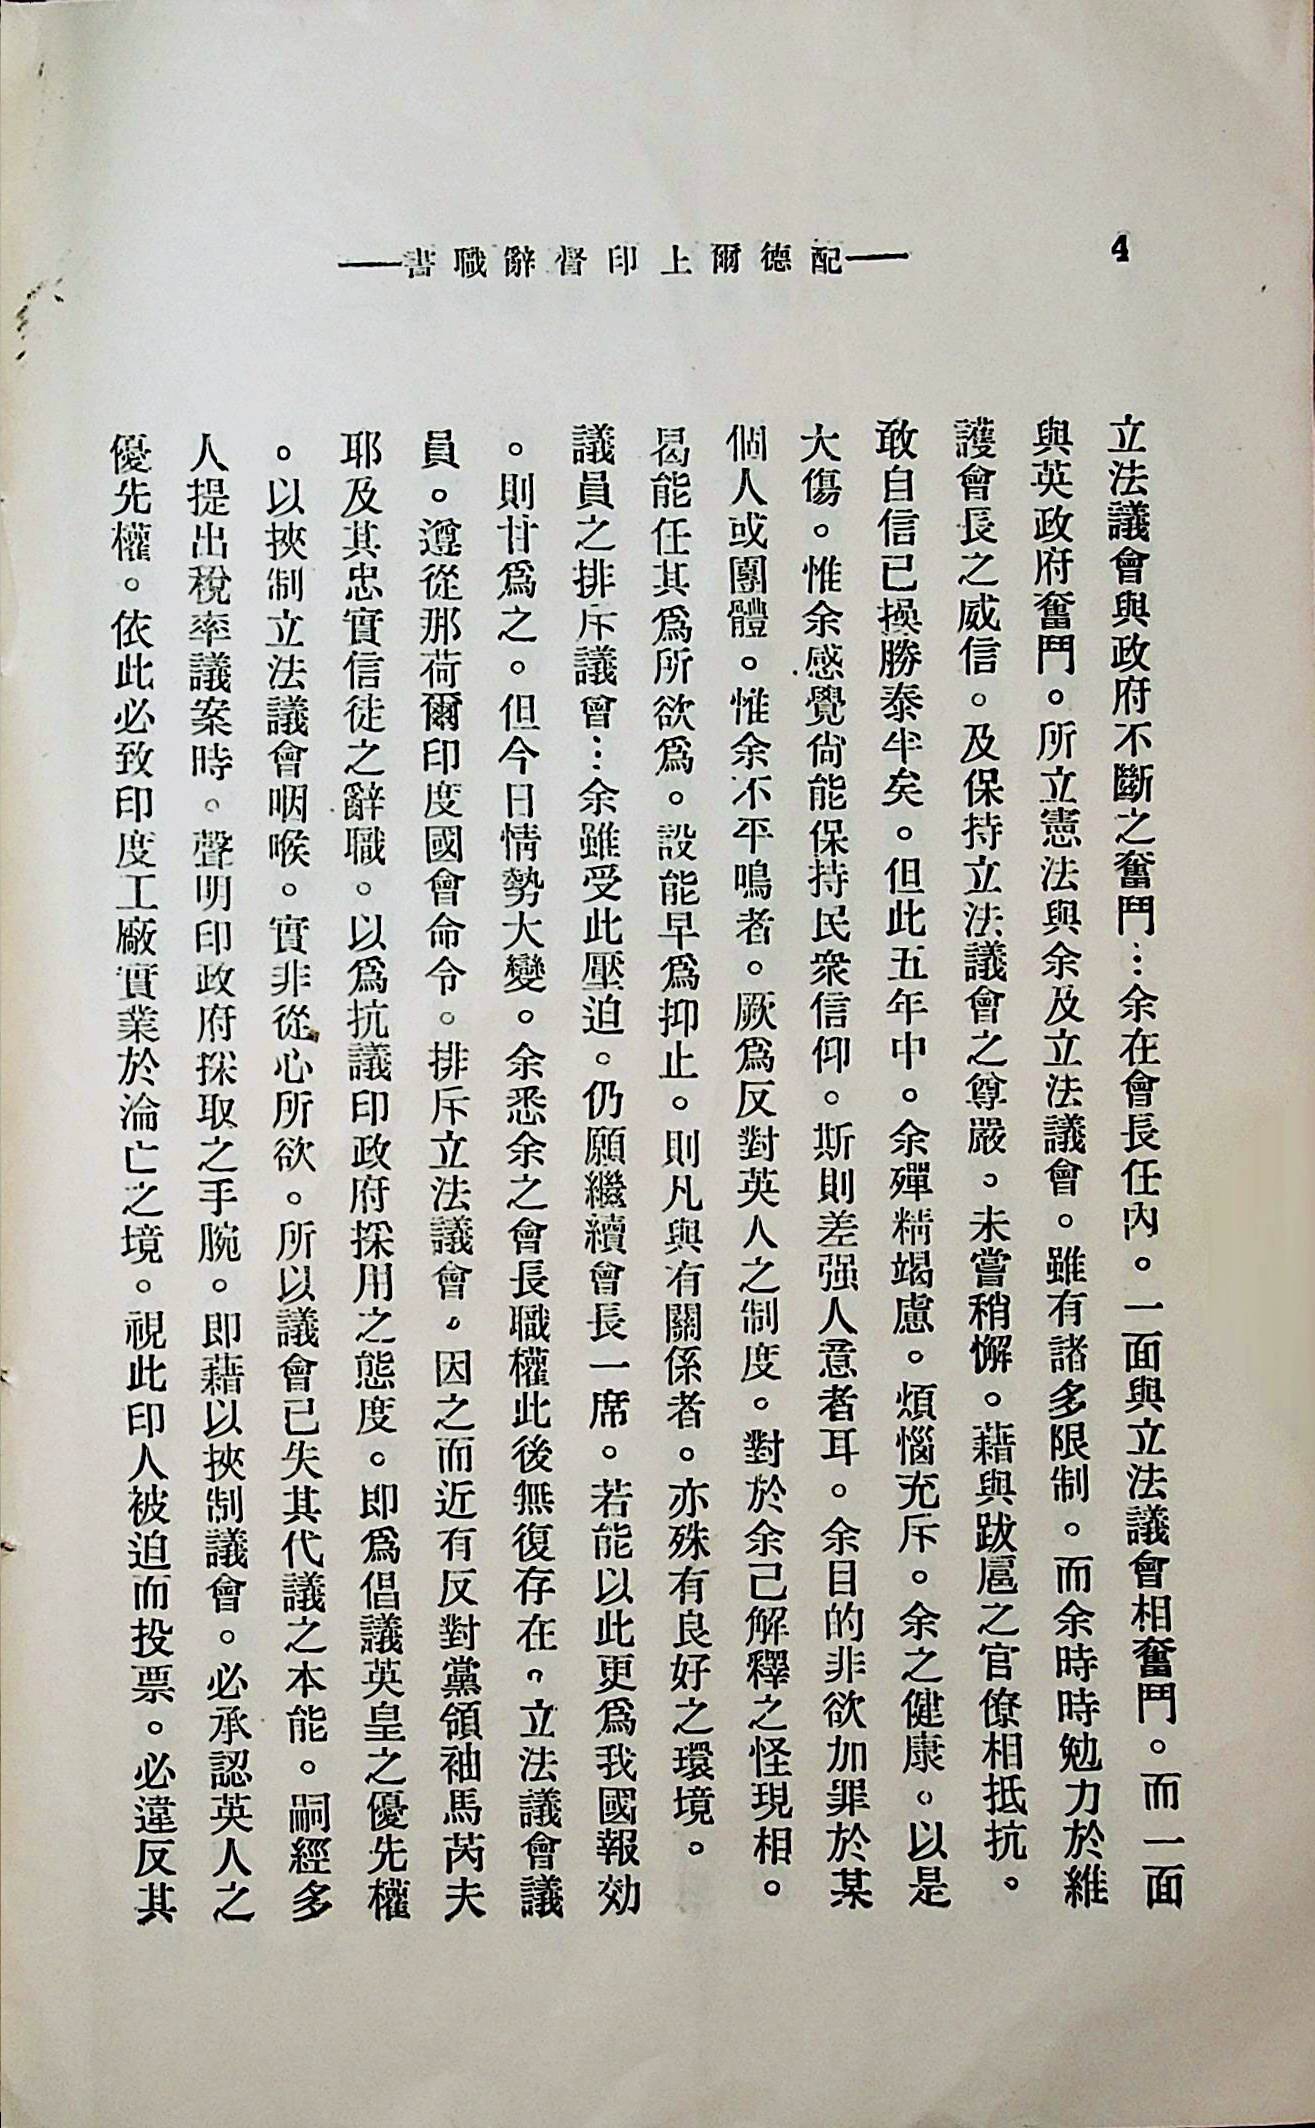 4
——配德爾上印督辭職書——
立法議會與政府不斷之奮鬥…余在會長任內。一面與立法議會相奮鬥。而一面
與英政府奮鬥。所立憲法與余及立法議會。雖有諸多限制。而余時時勉力於維
護會長之威信。及保持立法議會之尊嚴。未嘗稍懈。藉與跋扈之官僚相抵抗。
敢自信已操勝泰半矣。但此五年中。余殫精竭慮。煩惱充斥。余之健康。以是
大傷。惟余感覺尙能保持民衆信仰。斯則差强人意者耳。余目的非欲加罪於某
個人或團體。惟余不平鳴者。厥爲反對英人之制度。對於余己解釋之怪現相。
曷能任其爲所欲爲。設能早爲抑止。則凡與有關係者。亦殊有良好之環境。
議員之排斥議會…余雖受此壓迫。仍願繼續會長一席。若能以此更爲我國報効
。則甘爲之。但今日情勢大變。余悉余之會長職權此後無復存在。立法議會議
員。遵從那荷爾印度國會命令。排斥立法議會。因之而近有反對黨領袖馬芮夫
耶及其忠實信徒之辭職。以爲抗議印政府採用之態度。即爲倡議英皇之優先權
。以挾制立法議會咽喉。實非從心所欲。所以議會已失其代議之本能。嗣經多
人提出稅率議案時。聲明印政府採取之手腕。即藉以挾制議會。必承認英人之
優先權。依此必致印度工廠實業於淪亡之境。視此印人被迫而投票。必違反其